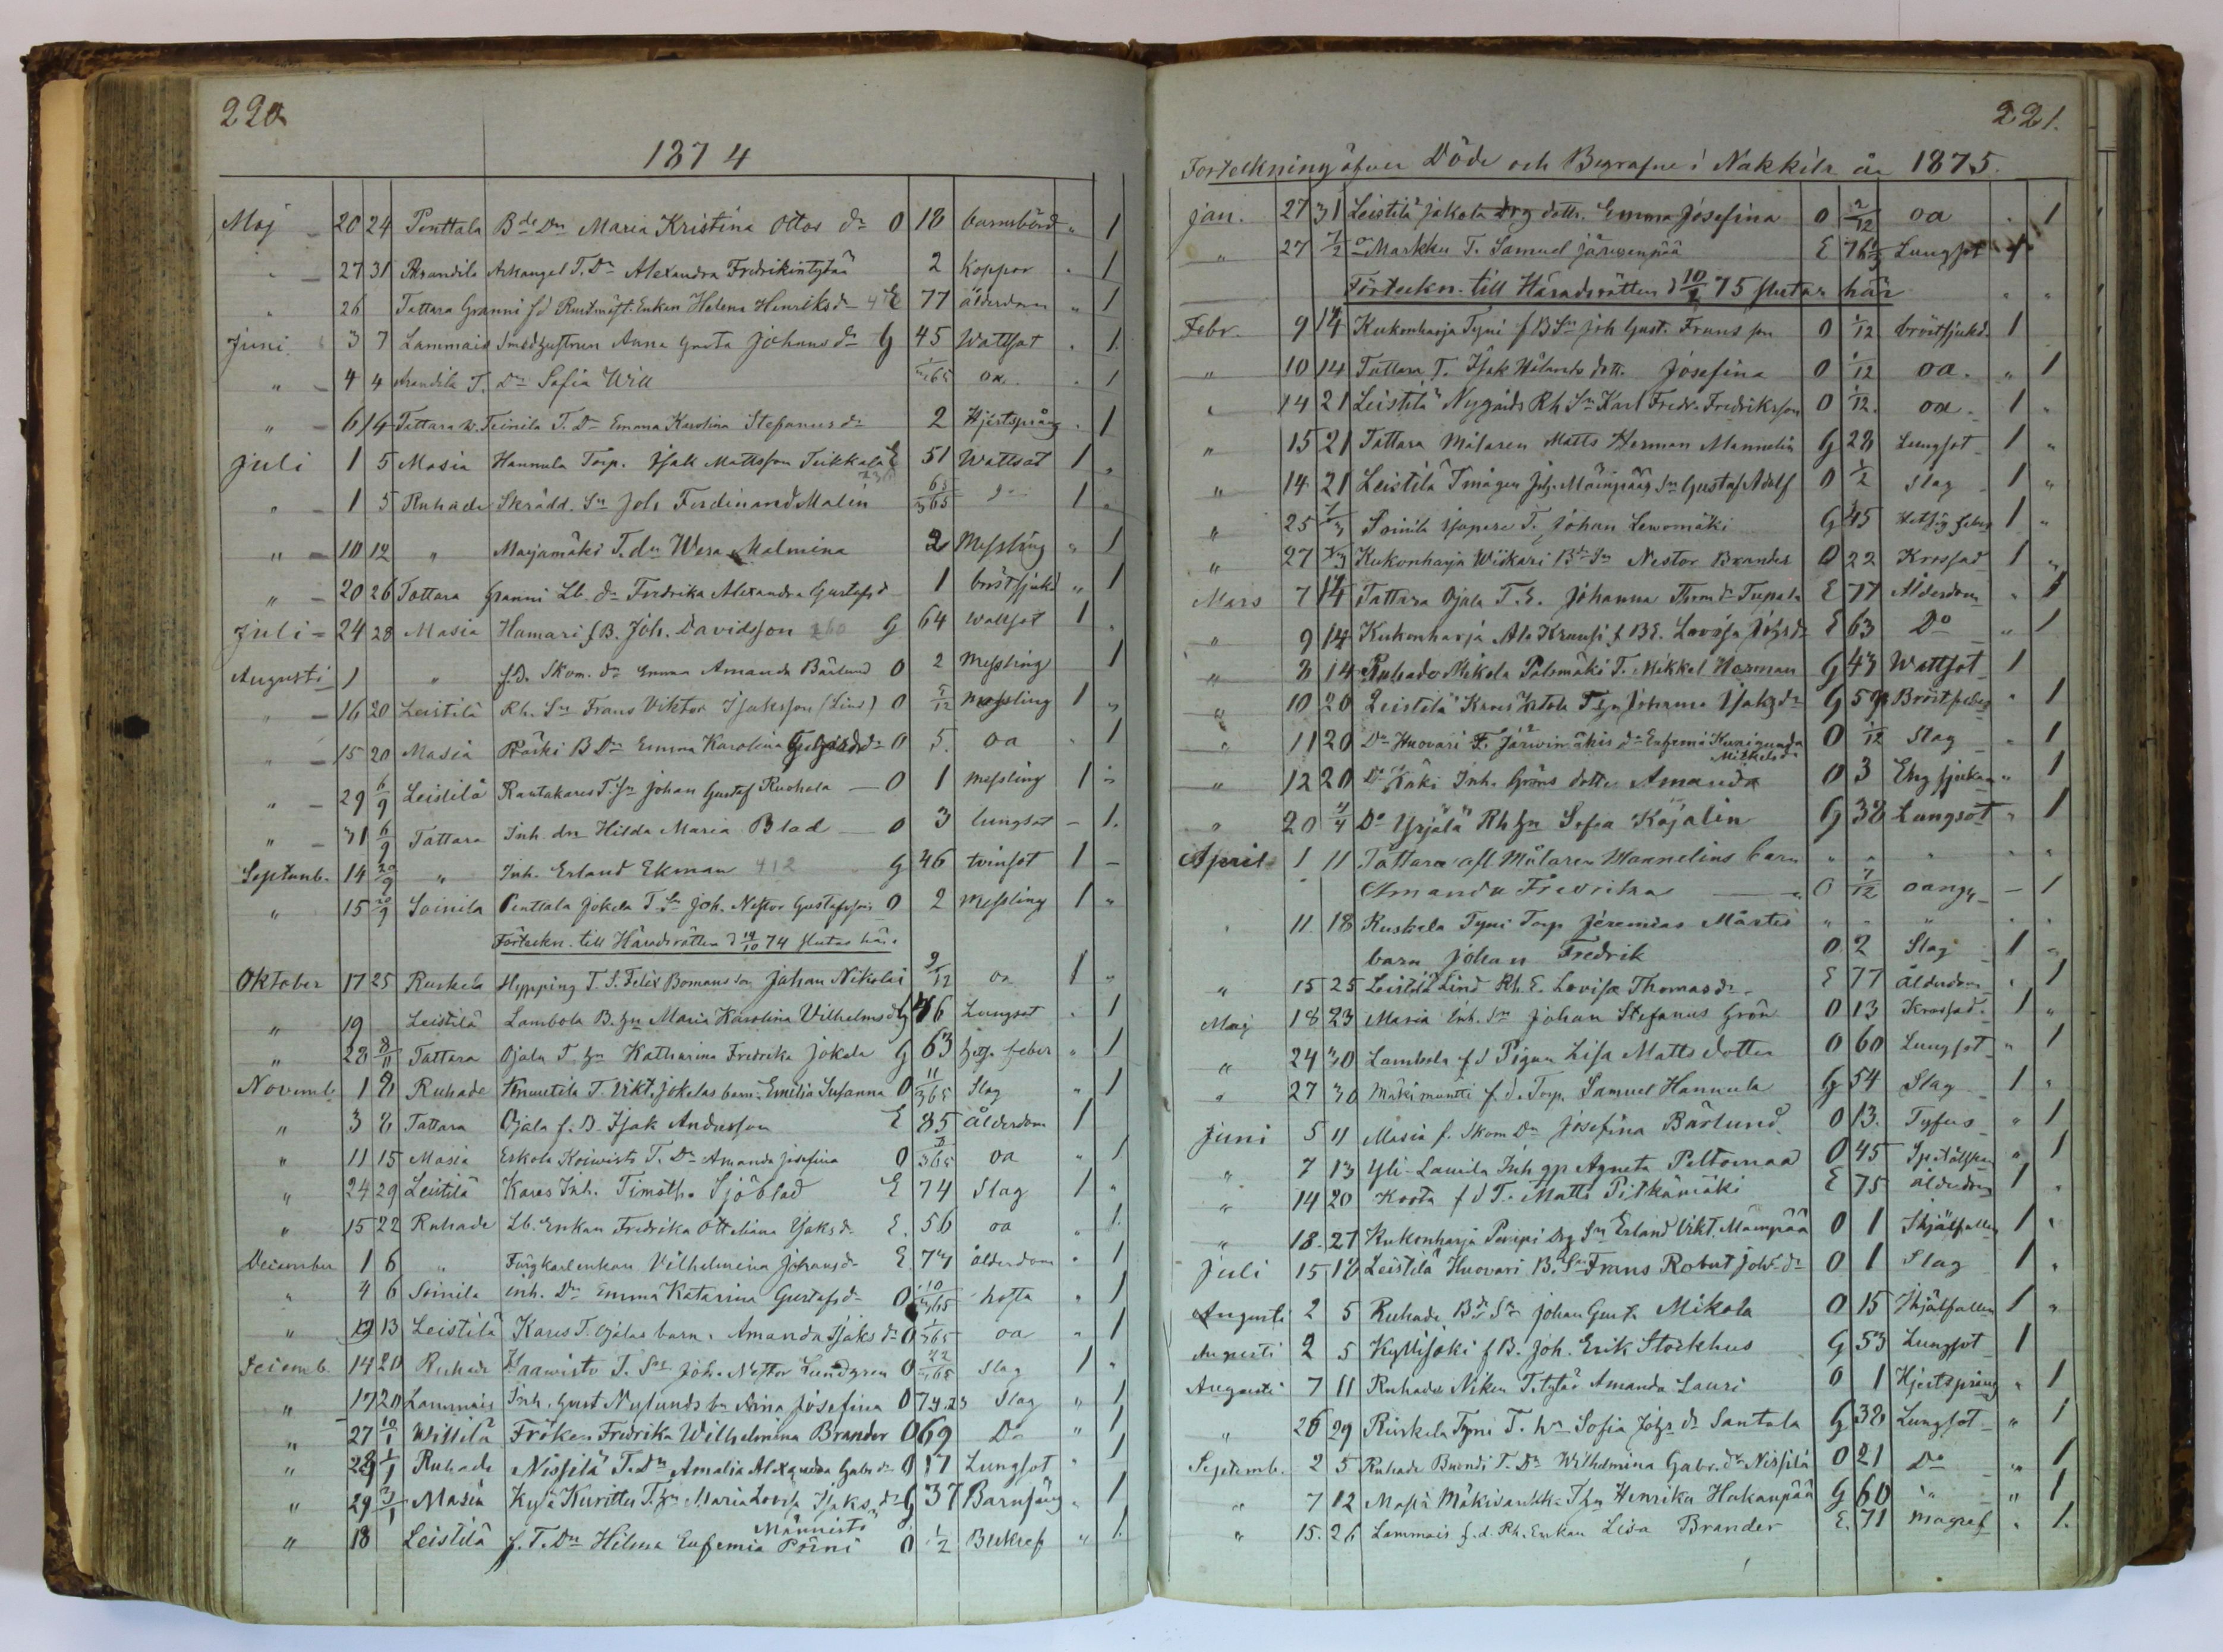 220
1874
Maj 20 24 Penttala Bde Dn Maria Kristina Ottos dr O 18 barnsbörd " 1
" 27 31 Arkangel T. Dr Alexandra 2 Koppor " 1
" 26 Tattara Granni fd Enkan Helena Henriksdr E 77 ålderdom " 1
Juni 3 7 Lammais Smedhustrun Anna Greta Johansdr G 45 Wattsot " 1
" 4 4 T. Dr Sofia Will oa " 1
" 6 14 Tattara w. Teinila T. Dr Emma Karolina Stefanusdr 2 Hjertsprång " 1
Juli 1 5 Masia Hannula Torp. Isak Mattsson Teikkala E 51 Wattsot 1 "
" 1 5 Ruhade Skrädd. Sn Joh Ferdinand Malin 1 "
" 10 12 " Marjamäki T. dn Wera Malmina 2 Messling " 1
" 20 26 Tattara Granni Lb. dr Fredrika Alexandra Gustafsd 1 bröstsjukd " 1
Juli 24 28 Masia Hamari f.B. Joh. Davidsson 260 G 64 wattsot 1 "
Augusti 1 " f.d. Skom. dr Emma Amanda Bärlund O 2 Messling 1
" 16 20 Leistilä Rh. Sn Frans Viktor Isaksson (Lind) O 7/12 messling 1 "
" 15 20 Masia B Dn Emma Karolina O 5 oa " 1
" 29 6/9 Leistilä Rautakares T. Sn Johan Gustaf Ruohola O 1 messling 1 "
" 31 6/9 Tattara Inh. dn Hilda Maria Blad O 3 lungsot 1
Septemb. 14 20/9 " Inh. Erland Ekman 412 G 46 tvinsot 1
" 15 20/9 Soinila Penttala Jokela T. Sn Joh. Nestor Gustafsson O 2 messling 1 "
Förteckn. till Häradsrätten d 19/10 74 slutar här.
Oktober 17 25 Ruskela Hypping T. S. Felix Bomans son Johan Nikolai 9/12 oa 1 "
" 19 Leistilä Lambola B. hn Maria Karolina Vilhelmsd G 46 Lungsot " 1
" 28 8/11 Tattara Ojala T. hn Katharina Fredrika Jokela G 63 hets feber " 1
Novemb. 1 8 Ruhade Knuutila T. Vikt. Jokelas barn Emilia Susanna O 11/365 Slag " 1
" 3 8 Tattara Ojala f. B. Isak Andersson E 85 Ålderdom 1
" 11 15 Masia Eskola Koiwisto T. Dr Amanda Josefina O oa " 1
" 24 29 Leistilä Kares Inh. Timoth. Sjöblad E 74 Slag 1 "
" 15 22 Ruhade Lb. Enkan Fredrika Ottiliana Isaksd. E. 56 oa " 1
December 1 6 " Färgkarlenkan Vilhelmina Johansd E. 74 ålderdom " 1
" 4 6 Soinila Inh. Dn Emma Katarina Gustafsd O 10/365 hosta " 1
" 13 13 Leistilä Kares T. Ojalas barn. Amanda Isaksd O 1/365 oa " 1
Decemb. 14 20 Ruhade Haawisto T. Sn Joh. Nestor Lundgren O slag 1 "
" 17 20 Lammais Inh. Gust Nylunds bn Aina Josefina O Slag " 1
" 27 10/1 Wissilä Fröken Fredrika Wilhelmina Brander O 69 Do " 1
" 28 Ruhade Nissilä T. dn Amalia Alexandra Gabr. dr O 17 Lungsot " 1
" 29 3/1 Masia Kylä Kurittu T. hn Maria Lovisa Isaksdr G 37 Barnsäng " 1
Männistö
" 18 Leistilä f. T. Dn Hilma Eufemia Pörni O 1/2 Bukref " 1
221.
Forteckning öfver Döde och Begrafne i Nakkila år 1875.
Jan. 27 31 Leistilä Jakola Drg dottr. Emma Josefina O 2/12 oa " 1
" 27 7/2 Markku T. Samuel Järwenpää E 76 Lungsot " 1
Förteckn. till Häradsrätten d 10/2 75 slutar här
Febr. 9 14 Kukonharja Tyni f B Sn Joh Gust. Frans son O 1/12 bröstsjukd. 1
" 10 14 Tattara T. Isak Wälarats dott. Josefina O 1/12 oa. " 1
" 14 21 Leistilä Nygårds Rh Sn Karl Fredr. Fredriksson O 1/12 oa 1 "
" 15 21 Tattara Målaren Matts Herman Mannelin G 28 Lungsot 1 "
" 14 21 Leistilä Joh. Mäenpääs Sn Gustaf Adolf O 1/2 Slag 1 "
" 25 7/3 Soinila T. Johan Lewomäki G 45 Hetsig feber 1 "
" 27 7/3 Kukonharja Wiikari Bdn Sn Nestor Brander O 22 Krossad 1 "
Mars 7 14 Tattara Ojala T. E. Johanna Thomdr Tupala E 77 Ålderdom " 1
" 9 14 Kukonharja Ala Krausi f BE. Lovisa E 63 Do " 1
" 8 14 Ruhade Mikola Palomäki T. Mikkel Herman G 43 Wattsot 1
" 10 20 Leistilä Kares Johanna Isaksdr G 59 Bröstfeber " 1
" 11 20 Do Huovari T. Järwinmäkis dr Eufemi Kunigunda O 2/12 Slag " 1
Mikkelsdr
" 12 20 Do Käki Inh. Gröns dotter Amanda O 3 Eng sjukan " 1
" 20 4/4 Do Yrjälä Rh hn Sofia Köjalin G 38 Lungsot " 1
April 1 11 Tattara afl. Målaren Mannelins barn " " " "
Amanda Fredrika O 7/12 oangs 1
" 11 18 Ruskela Tyni Torp Jeremias Mårtes " " " "
barn Johan Fredrik O 2 Slag 1 "
" 15 25 Leistilä Lind Rh. E. Lovisa Thomasdr E 77 ålderdom " 1
Maj 18 23 Masia Inh. Sn Johan Stefanus Grön O 13 Krossad. 1 "
" 24 30 Lambola f d Pigan Lisa Matts dotter O 60 Lungsot " 1
" 27 30 f. d. Torp. Samuel Hannula G 54 Slag 1 "
Juni 5 11 Masia f. Skom Dn Josefina Bärlund O 13. Tyfus " 1
" 7 13 Yli-Lauila Inh gp Agneta Peltomaa O 45 " 1
" 14 20 Korta f d T. Matts Pitkämäki E 75 ålderdom 1 "
" 18 27 Kukonharja Drg Sn Erland Vikt. Mäenpää O 1 Ihjälfallen 1 "
Juli 15 18 Leistilä Huovari B. Sn Frans Robert Johsdr O 1 Slag 1 "
Augusti 2 5 Ruhade Bd Sn Johan Gust. Mikola O 15 Ihjälfallen 1 "
Augusti 2 5 Kyllijoki f B. Joh. Erik Stockhus G 53 Lungsot 1
Augusti 7 11 Ruhade Niken T. tytär Amanda Lauri O 1 Hjertsprång " 1
" 26 29 Ruskela Tyni T. hn Sofia Johsdr Santala G 32 Lungsot " 1
Septemb. 2 5 Ruhade T. Dr Wilhelmina Gabr. dr Nissilä O 21 Do " 1
" 7 12 Masia T hn Henrika Hakanpää G 60 " " 1
" 15. 26 Lammais f. d. Rh. Enkan Lisa Brander E. 71 magref " 1.